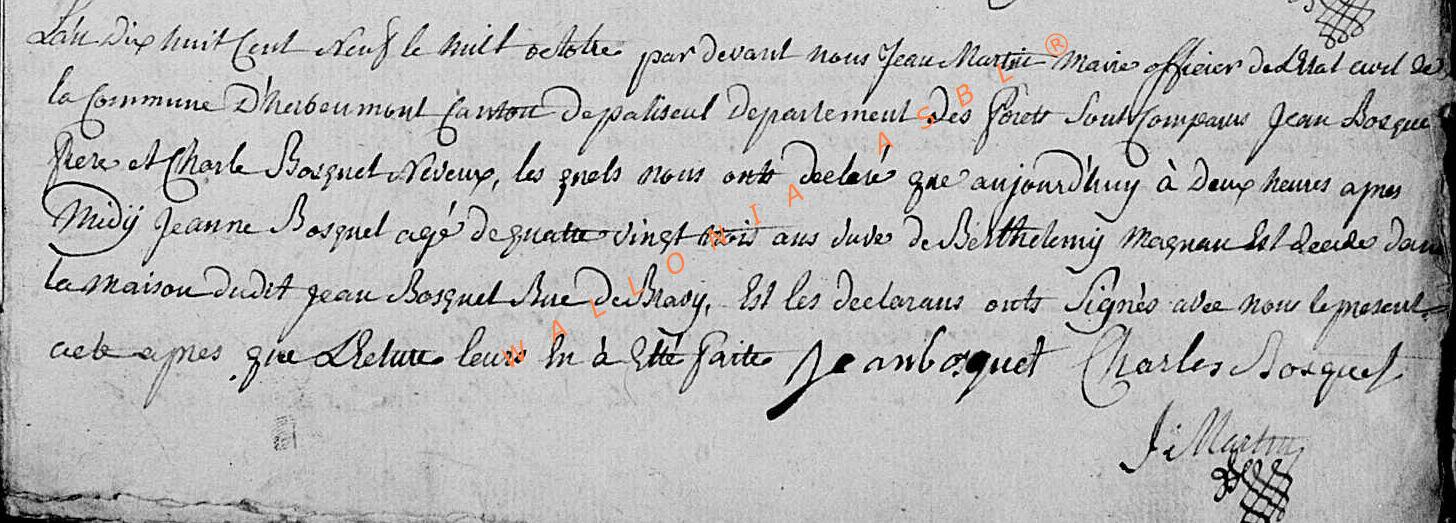 L'an Dix huit Cent Neuf le huit octobre par devant nous Jean Martin Maire officier de L'Etat civil de
la Commune D'herbeumont Canton De paliseul Departement Des forets Sont Comparus Jean Bosquet
frere et Charle Bosquet Neveux, les quels nous onts declaré que aujourd'huy à Deux heures apres
Midÿ Jeanne Bosquet agé de quatre vingt trois ans vuve de Berthelemÿ Magnau Est decede dans
la maison dudit Jean Bosquet Rue De Bravy, Est les declarans onts Signés avec nous le present
acte apres que Lecture leurs En à Etté faitte Jean bosquet Charles Bosquet
J: Martin
WALLONIA ASBL ®